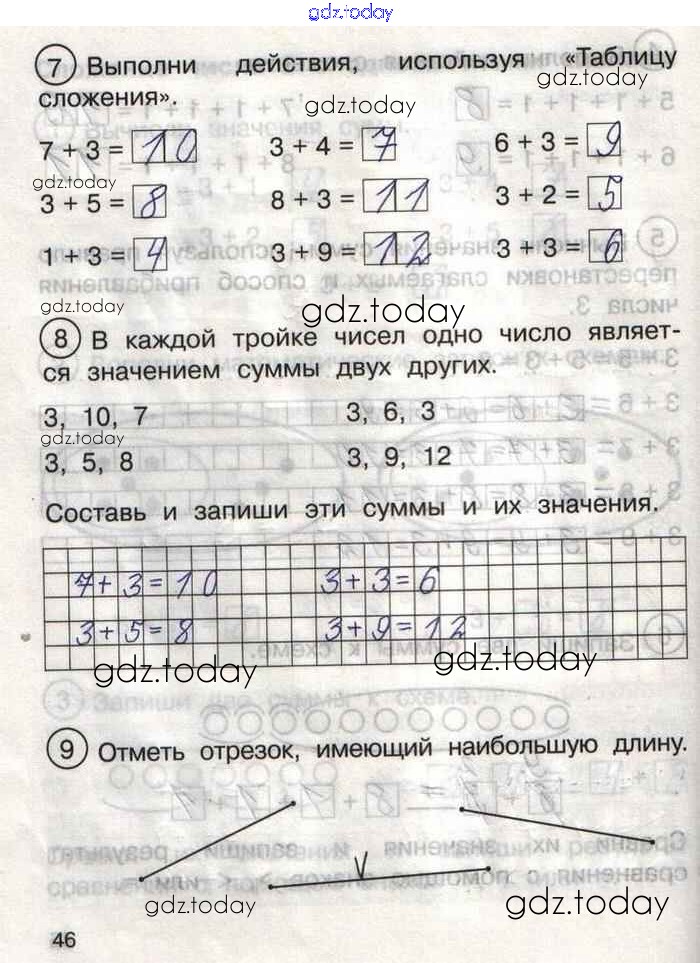 gdz.today
7 Выполни действия, используя «Таблицу
gdz.today
сложения».
gdz.today
7 + 3 = 10 3 + 4 = 7 6 + 3 = 9
gdz.today
3 + 5 = 8 8 + 3 = 11 3 + 2 = 5
1 + 3 = 4 3 + 9 = 12 3 + 3 = 6
gdz.today
gdz.today
gdz.today
8 В каждой тройке чисел одно число являет-
ся значением суммы двух других.
3, 10, 7 3, 6, 3
gdz.today
3, 5, 8 3, 9, 12
Составь и запиши эти суммы и их значения.
7+3=10 3+3=6
3+5=8 3+9=12
gdz.today gdz.today
9 Отметь отрезок, имеющий наибольшую длину.
V
gdz.today gdz.today
46